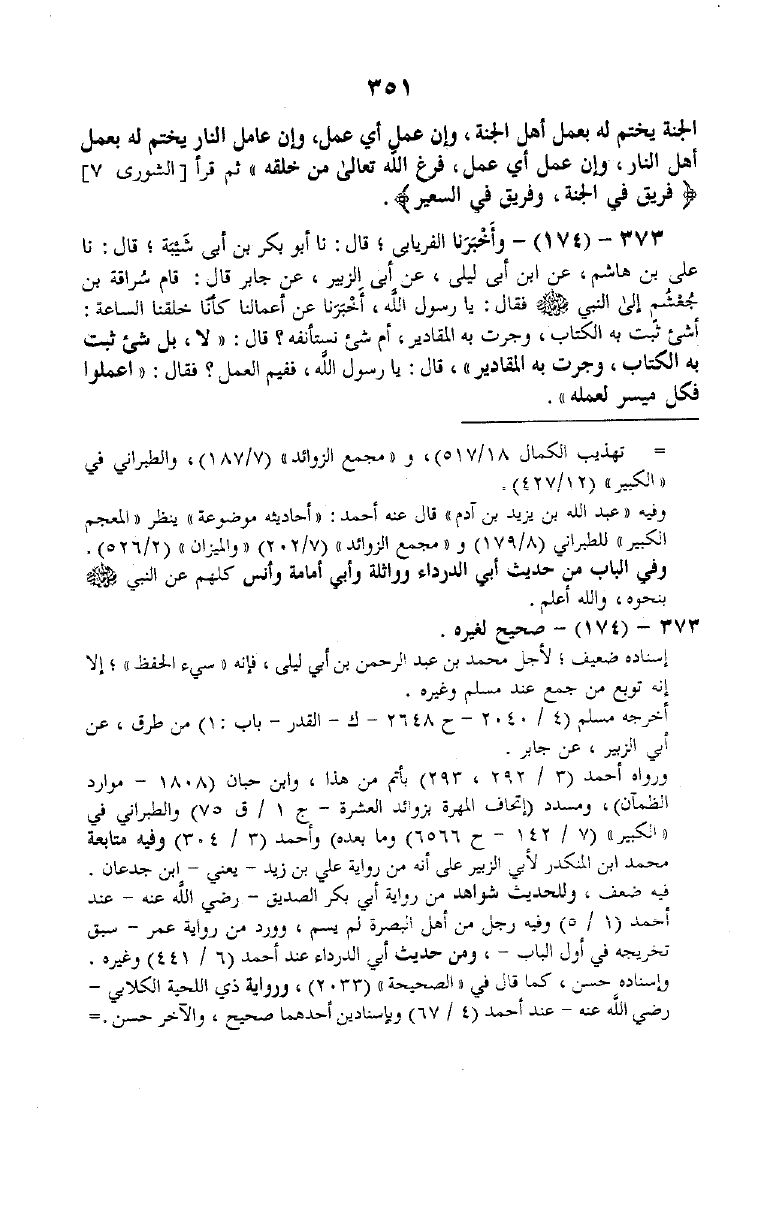 ٣٥١
الجنة يختم له بعمل أهل الجنة ، وإن عمل أي عمل، وإن عامل النار يختم له بعمل
أهل النار ، وإن عمل أي عمل ، فرغ الله تعالىٰ من خلقه » ثم قرأ [الشورى ٧]
﴿ فريق في الجنة ، وفريق في السعير﴾ .
٣٧٣ – (١٧٤) – وأَخْبَرَنا الفريابى ؛ قال : نا أبو بكر بن أبى شَيْبَة ؛ قال : نا
على بن هاشم ، عن ابن أبى ليلى ، عن أبى الزبير ، عن جابر قال : قام سُراقة بن
جُعْشُم إلىٰ النبي ﷺ فقال : يا رسول اللَّه ، أَخْبَرَنا عن أعمالنا كأنّا خلقنا الساعة :
أشئ ثَبت به الكتاب ، وجرت به المقادير ، أم شئ نستأنفه ؟ قال : « لا ، بل شئ ثبت
به الكتاب ، وجرت به المقادير » ، قال : يا رسول اللَّه ، ففيم العمل ؟ فقال : « اعملوا
فكل ميسر لعمله » .
= تهذيب الكمال ٥١٧/١٨)، و «مجمع الزوائد» (١٨٧/٧) ، والطبراني في
«الكبير» (٤٢٧/١٢) .
وفيه «عبد الله بن يزيد بن آدم» قال عنه أحمد : «أحاديثه موضوعة» ينظر «المعجم
الكبير» للطبراني (١٧٩/٨) و «مجمع الزوائد» (٢٠٢/٧) «والميزان» (٥٢٦/٢) .
وفي الباب من حديث أبي الدرداء وواثلة وأبي أمامة وأنس كلهم عن النبي ﷺ
بنحوه ، والله أعلم .
٣٧٣ – (١٧٤) – صحيح لغيره .
إسناده ضعيف ؛ لأجل محمد بن عبد الرحمن بن أبي ليلى ، فإنه « سيء الحفظ » ؛ إلا
إنه توبع من جمع عند مسلم وغيره .
أخرجه مسلم (٤ / ٢٠٤٠ – ح ٢٦٤٨ – ك – القدر – باب : ١) من طرق ، عن
أبي الزبير ، عن جابر .
ورواه أحمد (٣ / ٢٩٢ ، ٢٩٣) بأتم من هذا ، وابن حبان (١٨٠٨ – موارد
الظمآن) ، ومسدد (إتحاف المهرة بزوائد العشرة – ج ١ / ق ٧٥) والطبراني في
«الكبير» (٧ / ١٤٢ – ح ٦٥٦٦ وما بعده) وأحمد (٣ / ٣٠٤) وفيه متابعة
محمد ابن المنكدر لأبي الزبير على أنه من رواية علي بن زيد – يعني – ابن جدعان .
فيه ضعف ، وللحديث شواهد من رواية أبي بكر الصديق – رضي اللَّه عنه – عند
أحمد (١ / ٥) وفيه رجل من أهل البصرة لم يسم ، وورد من رواية عمر – سبق
تخريجه في أول الباب – ، ومن حديث أبي الدرداء عند أحمد (٦ / ٤٤١) وغيره .
وإسناده حسن ، كما قال في «الصحيحة» (٢٠٣٣) ، ورواية ذي اللحية الكلابي –
رضي اللَّه عنه – عند أحمد (٤ / ٦٧) وبإسنادين أحدهما صحيح ، والآخر حسن .=